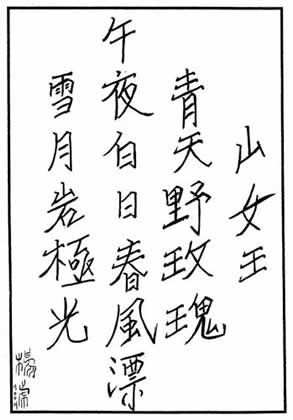 山女王
青天野玫瑰
午夜白日春風漂
雪月岩極光